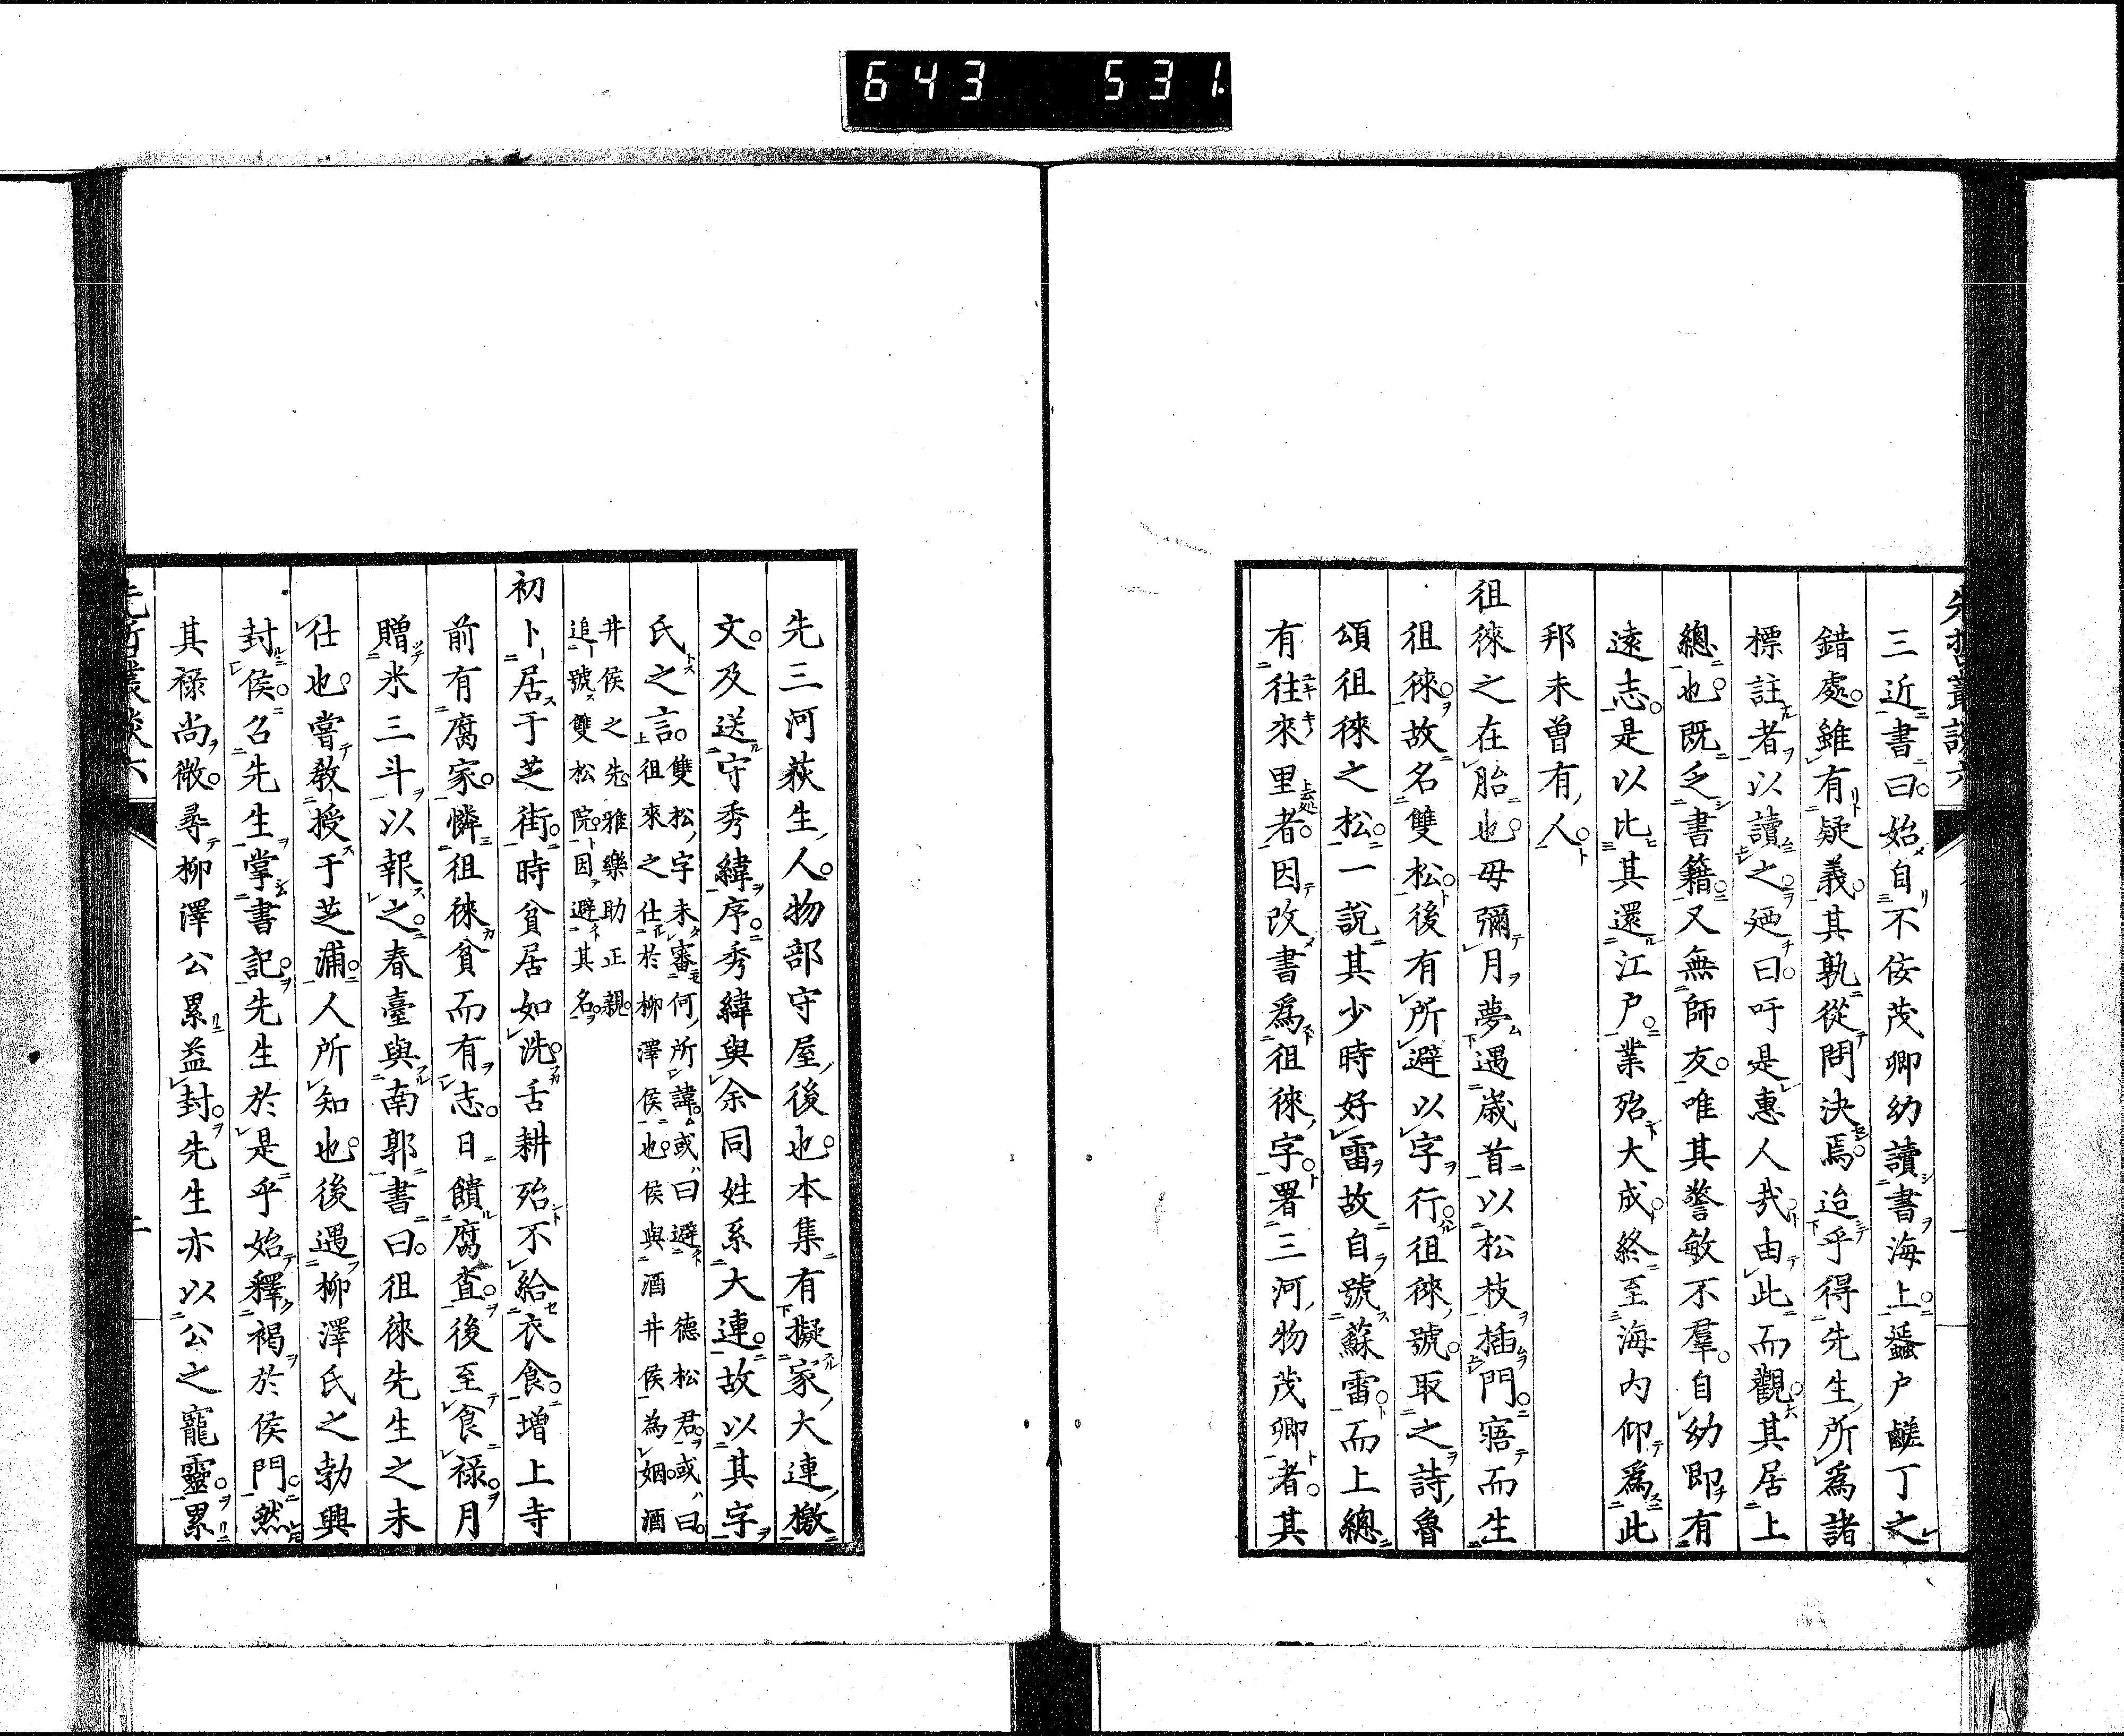 643 531.
三近書曰始自不佞茂卿幼讀書海上蜑戶鹺丁之
錯處雖有疑義其孰從問決焉迨乎得先生所爲諸
標註者以讀之廼曰吁是惠人哉由此而觀其居上
總也既乏書籍又無師友唯其警敏不羣自幼即有
遠志是以比其還江戶業殆大成終至海内仰爲此
邦未曾有人
徂徠之在胎也母彌月夢遇歲首以松枝插門寤而生
徂徠故名雙松後有所避以字行徂徠號取之詩魯
頌徂徠之松一說其少時好雷故自號蘇雷而上總
有徃來里者因改書爲徂徠字署三河物茂卿者其
先三河荻生人物部守屋後也本集有擬家大連檄
文及送守秀緯序秀緯與余同姓系大連故以其字
氏之言雙松字未審何所諱或曰避 德松君或曰
上徂來之仕於柳澤侯也侯與酒井侯為姻酒
井侯之先雅樂助正親
追號雙松院因避其名
初卜居于芝街時貧居如洗舌耕殆不給衣食增上寺
前有腐家憐徂徠貧而有志日饋腐査後至食祿月
贈米三斗以報之春臺與南郭書曰徂徠先生之未
仕也嘗教授于芝浦人所知也後遇柳澤氏之勃興
封侯召先生掌書記先生於是乎始釋褐於侯門然
其祿尚微尋柳澤公累益封先生亦以公之寵靈累